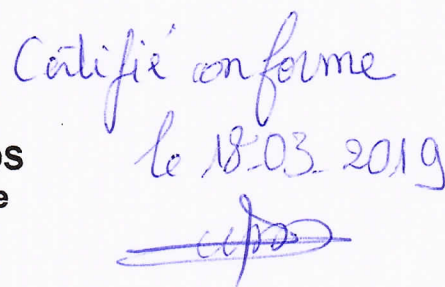 Certifié conforme
le 18-03-2019